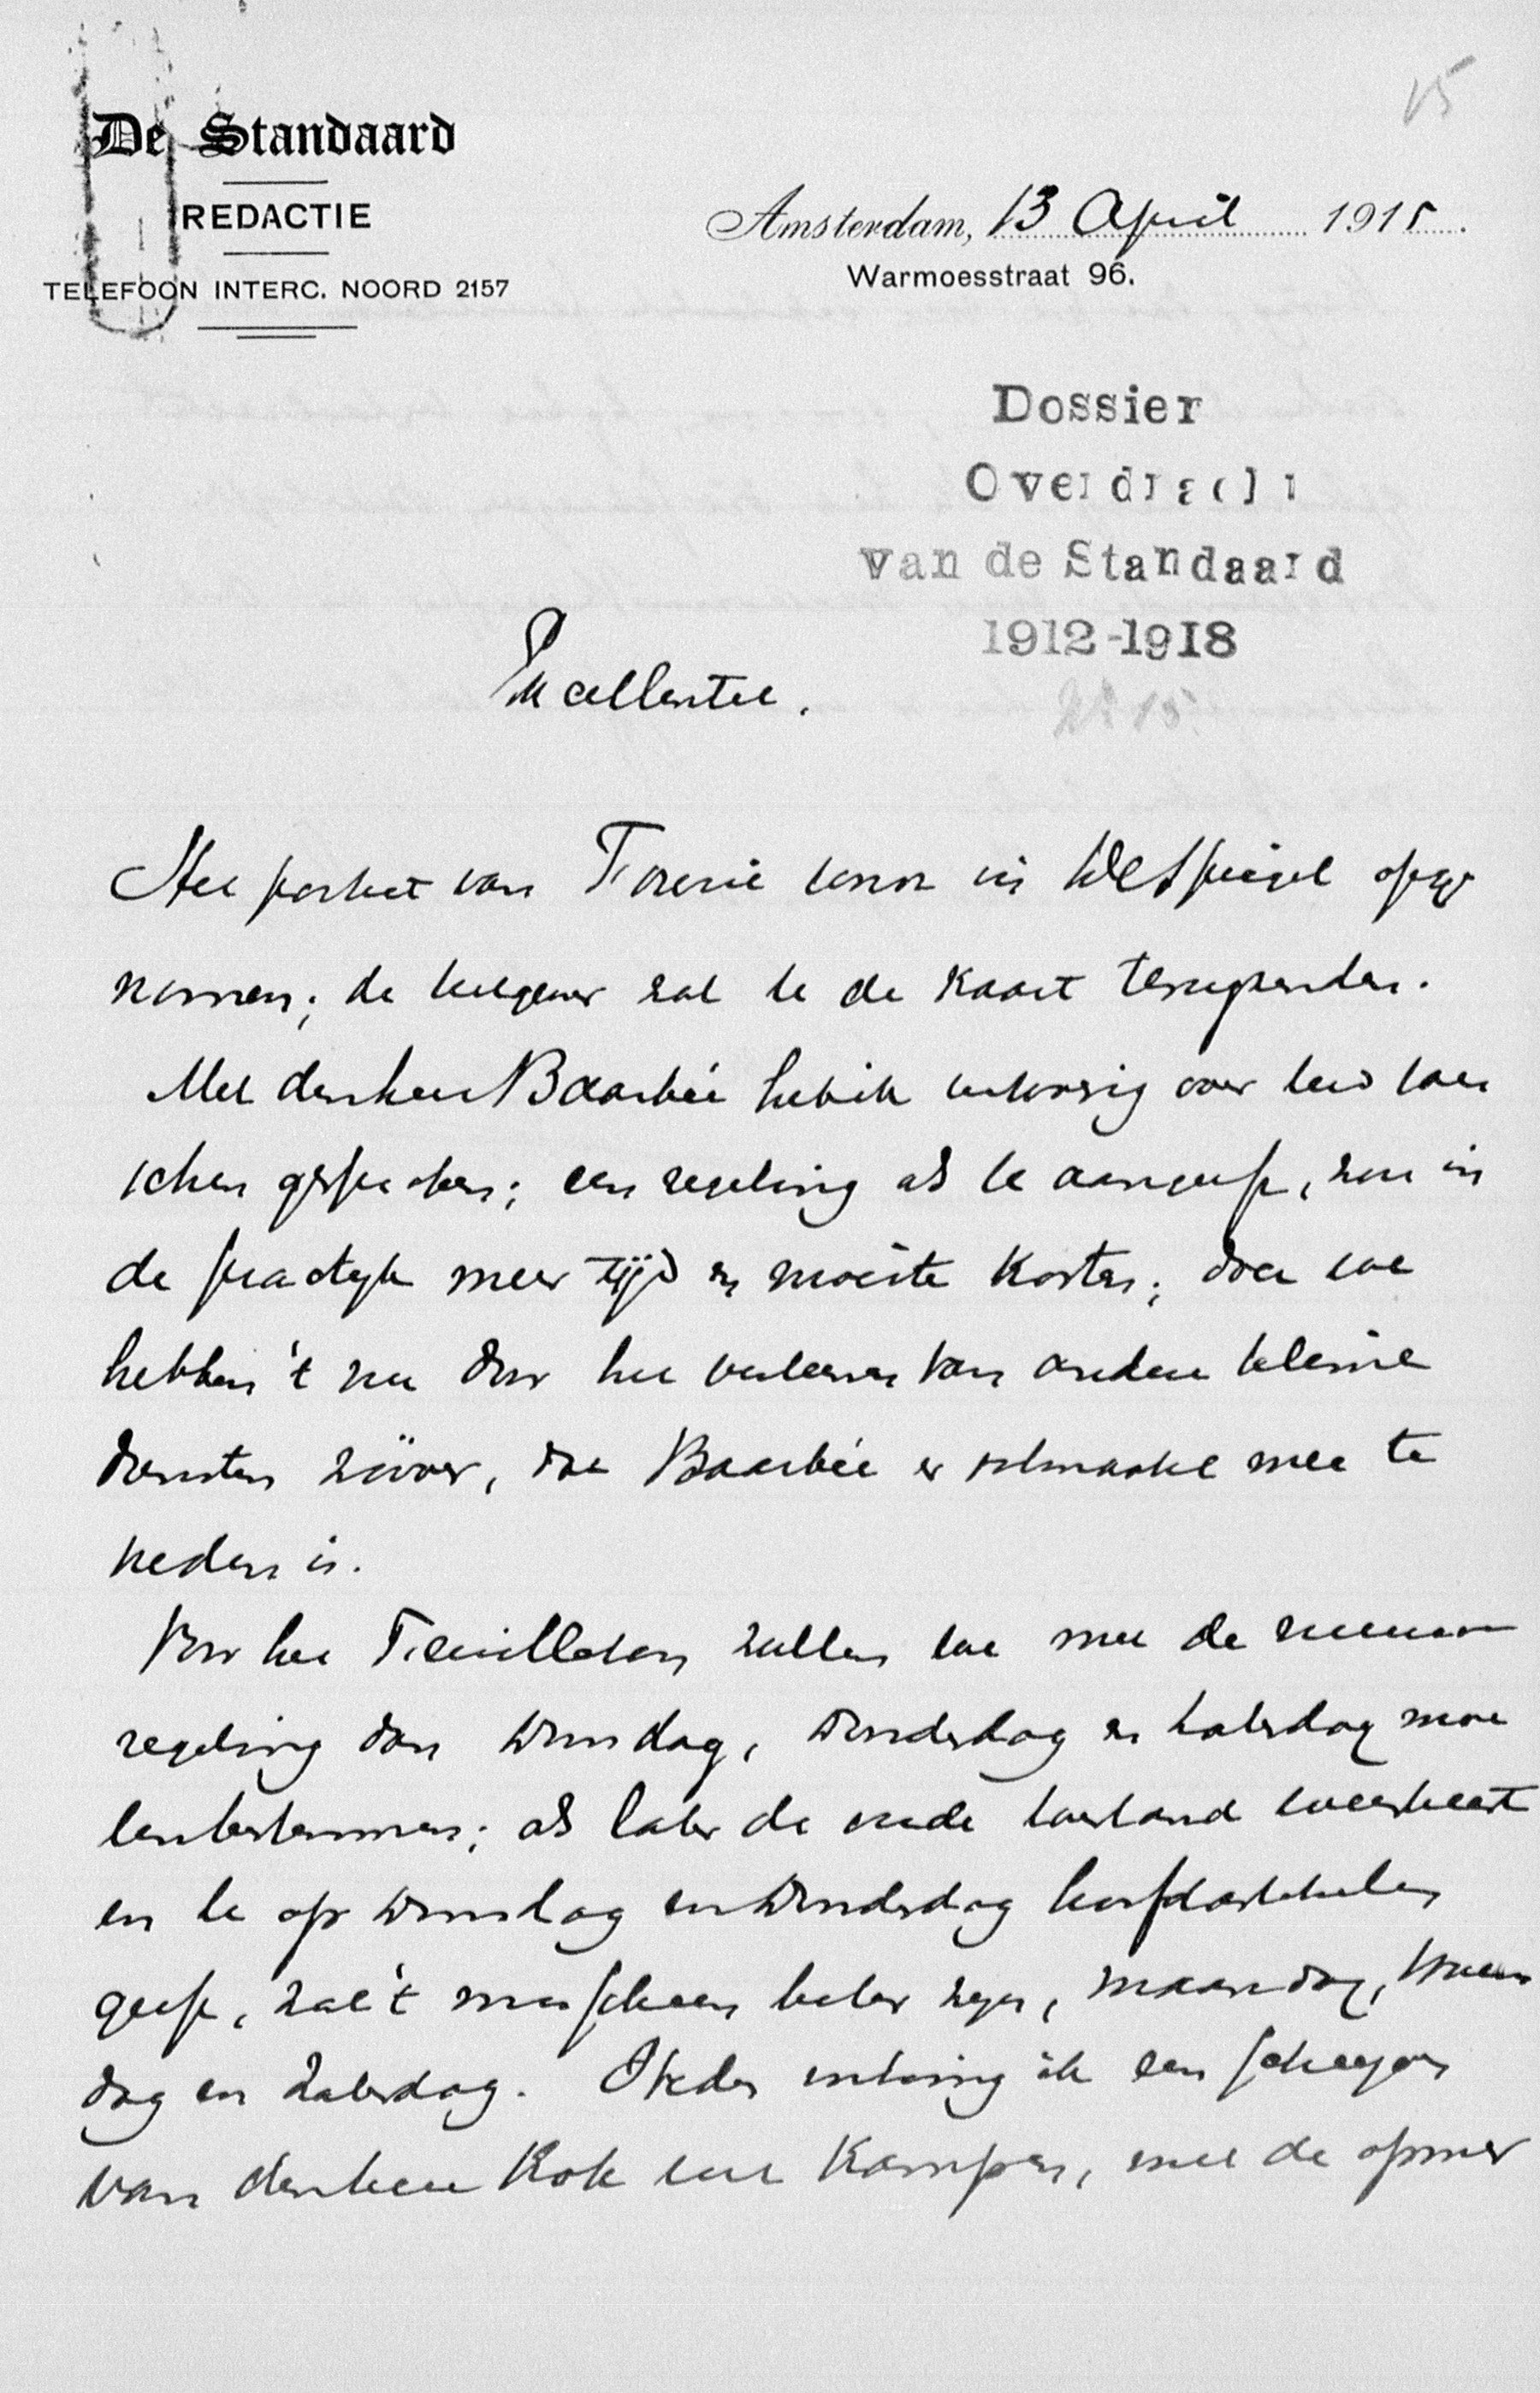 De Standaard
REDACTIE
TELEFOON INTERC. NOORD 2157
15
Amsterdam, 13 April 1915.
Warmoesstraat 96.
Dossier
Overdracht
van de Standaard
1912-1918
Excellentie.
Het portret van wordt in De Spiegel opge
nomen; de uitgever zal U de kaart terugzenden.
Met den heer Baarbée heb ik over uw
gesproken; een regeling als U aangeeft, zou in
de practyk meer tijd en moeite kosten; doch we
hebben 't nu door het van andere kleine
diensten zóóver, dat Baarbée er volmaakt mee te
vreden is.
Voor het Feuilleton zullen we met de nieuwe
regeling dan Dinsdag, Donderdag en Zaterdag moe
ten bestemmen; als later de oude toestand weerkeert
en U op Dinsdag en Donderdag hoofdartikelen
geeft, zal 't misschien beter zyn, Maandag, Woens
dag en Zaterdag. Heden ontving ik een schryven
van den heer Kok uit Kampen, met de opmer